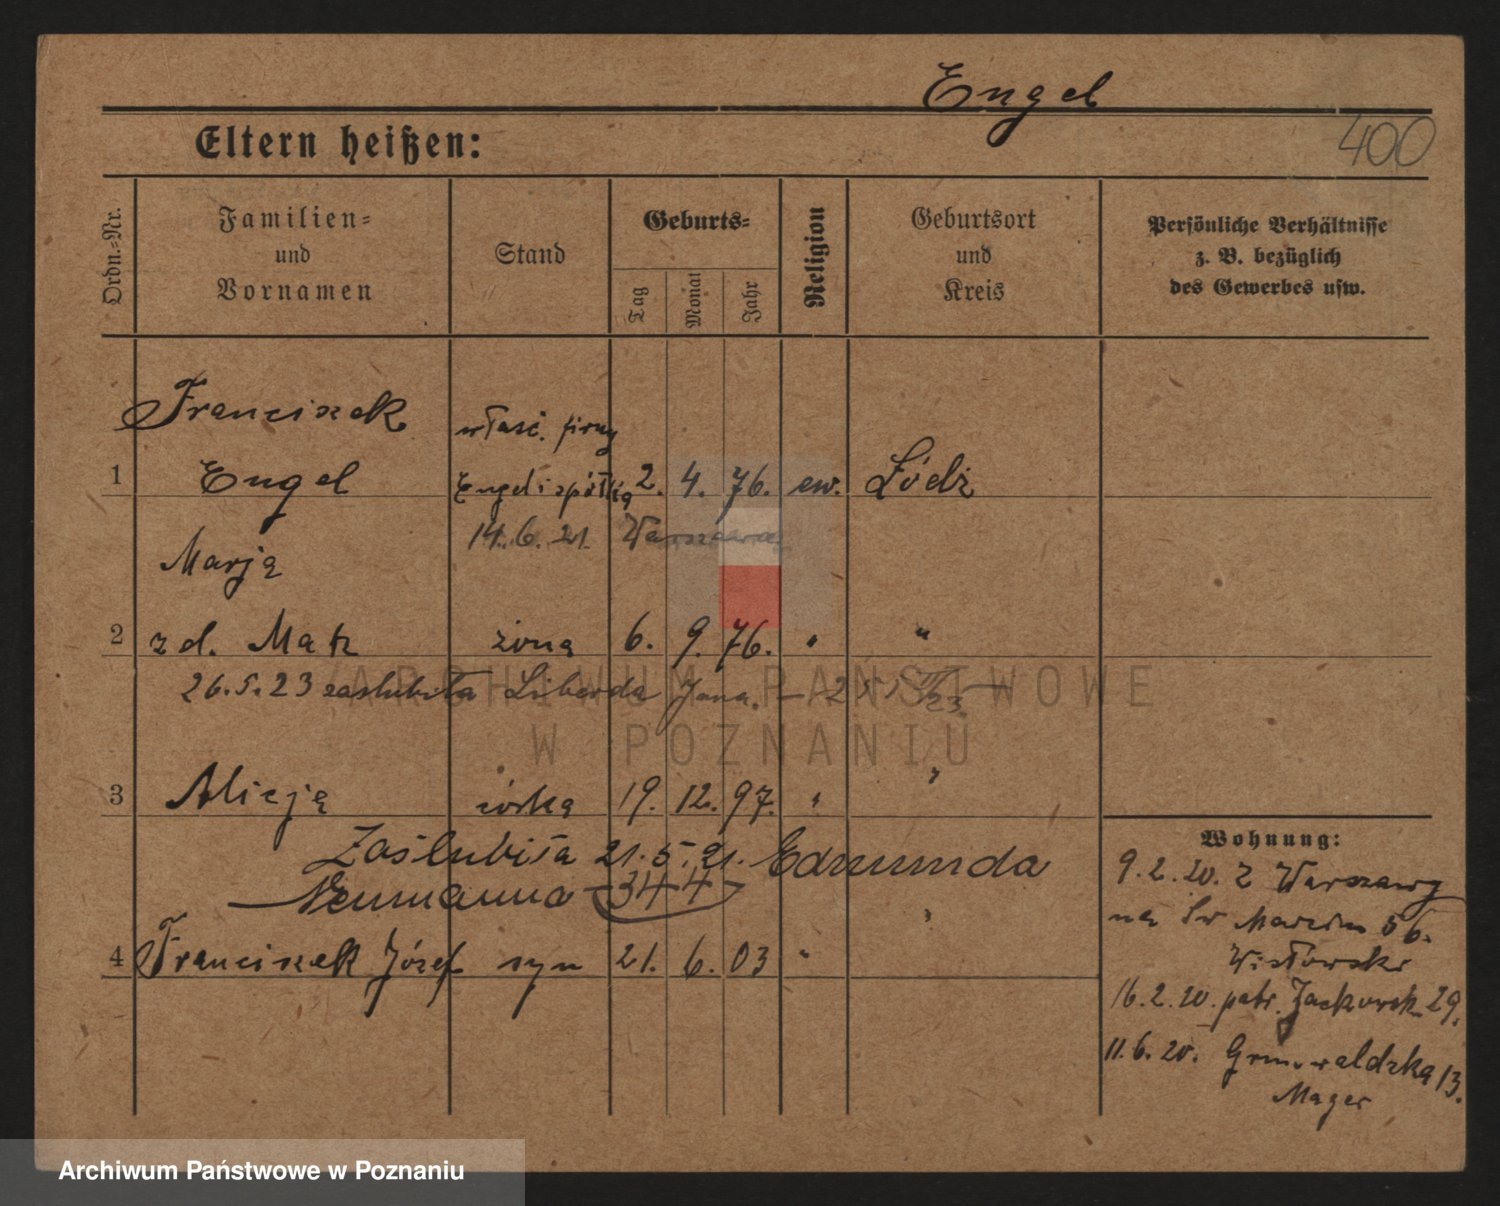 Engel
400
Eltern heißen:
Ordn.-Nr.
Familien-
und
Vornamen
Stand
Geburts-
Tag
Monat
Jahr
Religion
Geburtsort
und
Kreis
Persönliche Verhältnisse
z. B. bezüglich
des Gewerbes usw.
Franciszek
właśc. firmy
1 Engel Engel i spółka 2. 4. 76. ew. Łódź
14. 6. 21. Warszawa
Marja
2 z d. Matz żona 6. 9. 76. " "
26.5.23 zaślubiła Liberda Jana.
3 Alicja córka 19. 12. 97. " "
Zaślubiła 21.5.21. Edmunda
Neumanna 344
4 Franciszek Józef syn 21. 6. 03 " "
Wohnung:
9.2.20. Z Warszawy
na Św Marcin 56.
Wisłowski
16.2.20. patr. Jackowsk. 29.
11.6.20. Grunwaldzka 13.
Mager
ARCHIWUM PAŃSTWOWE
W POZNANIU
Archiwum Państwowe w Poznaniu